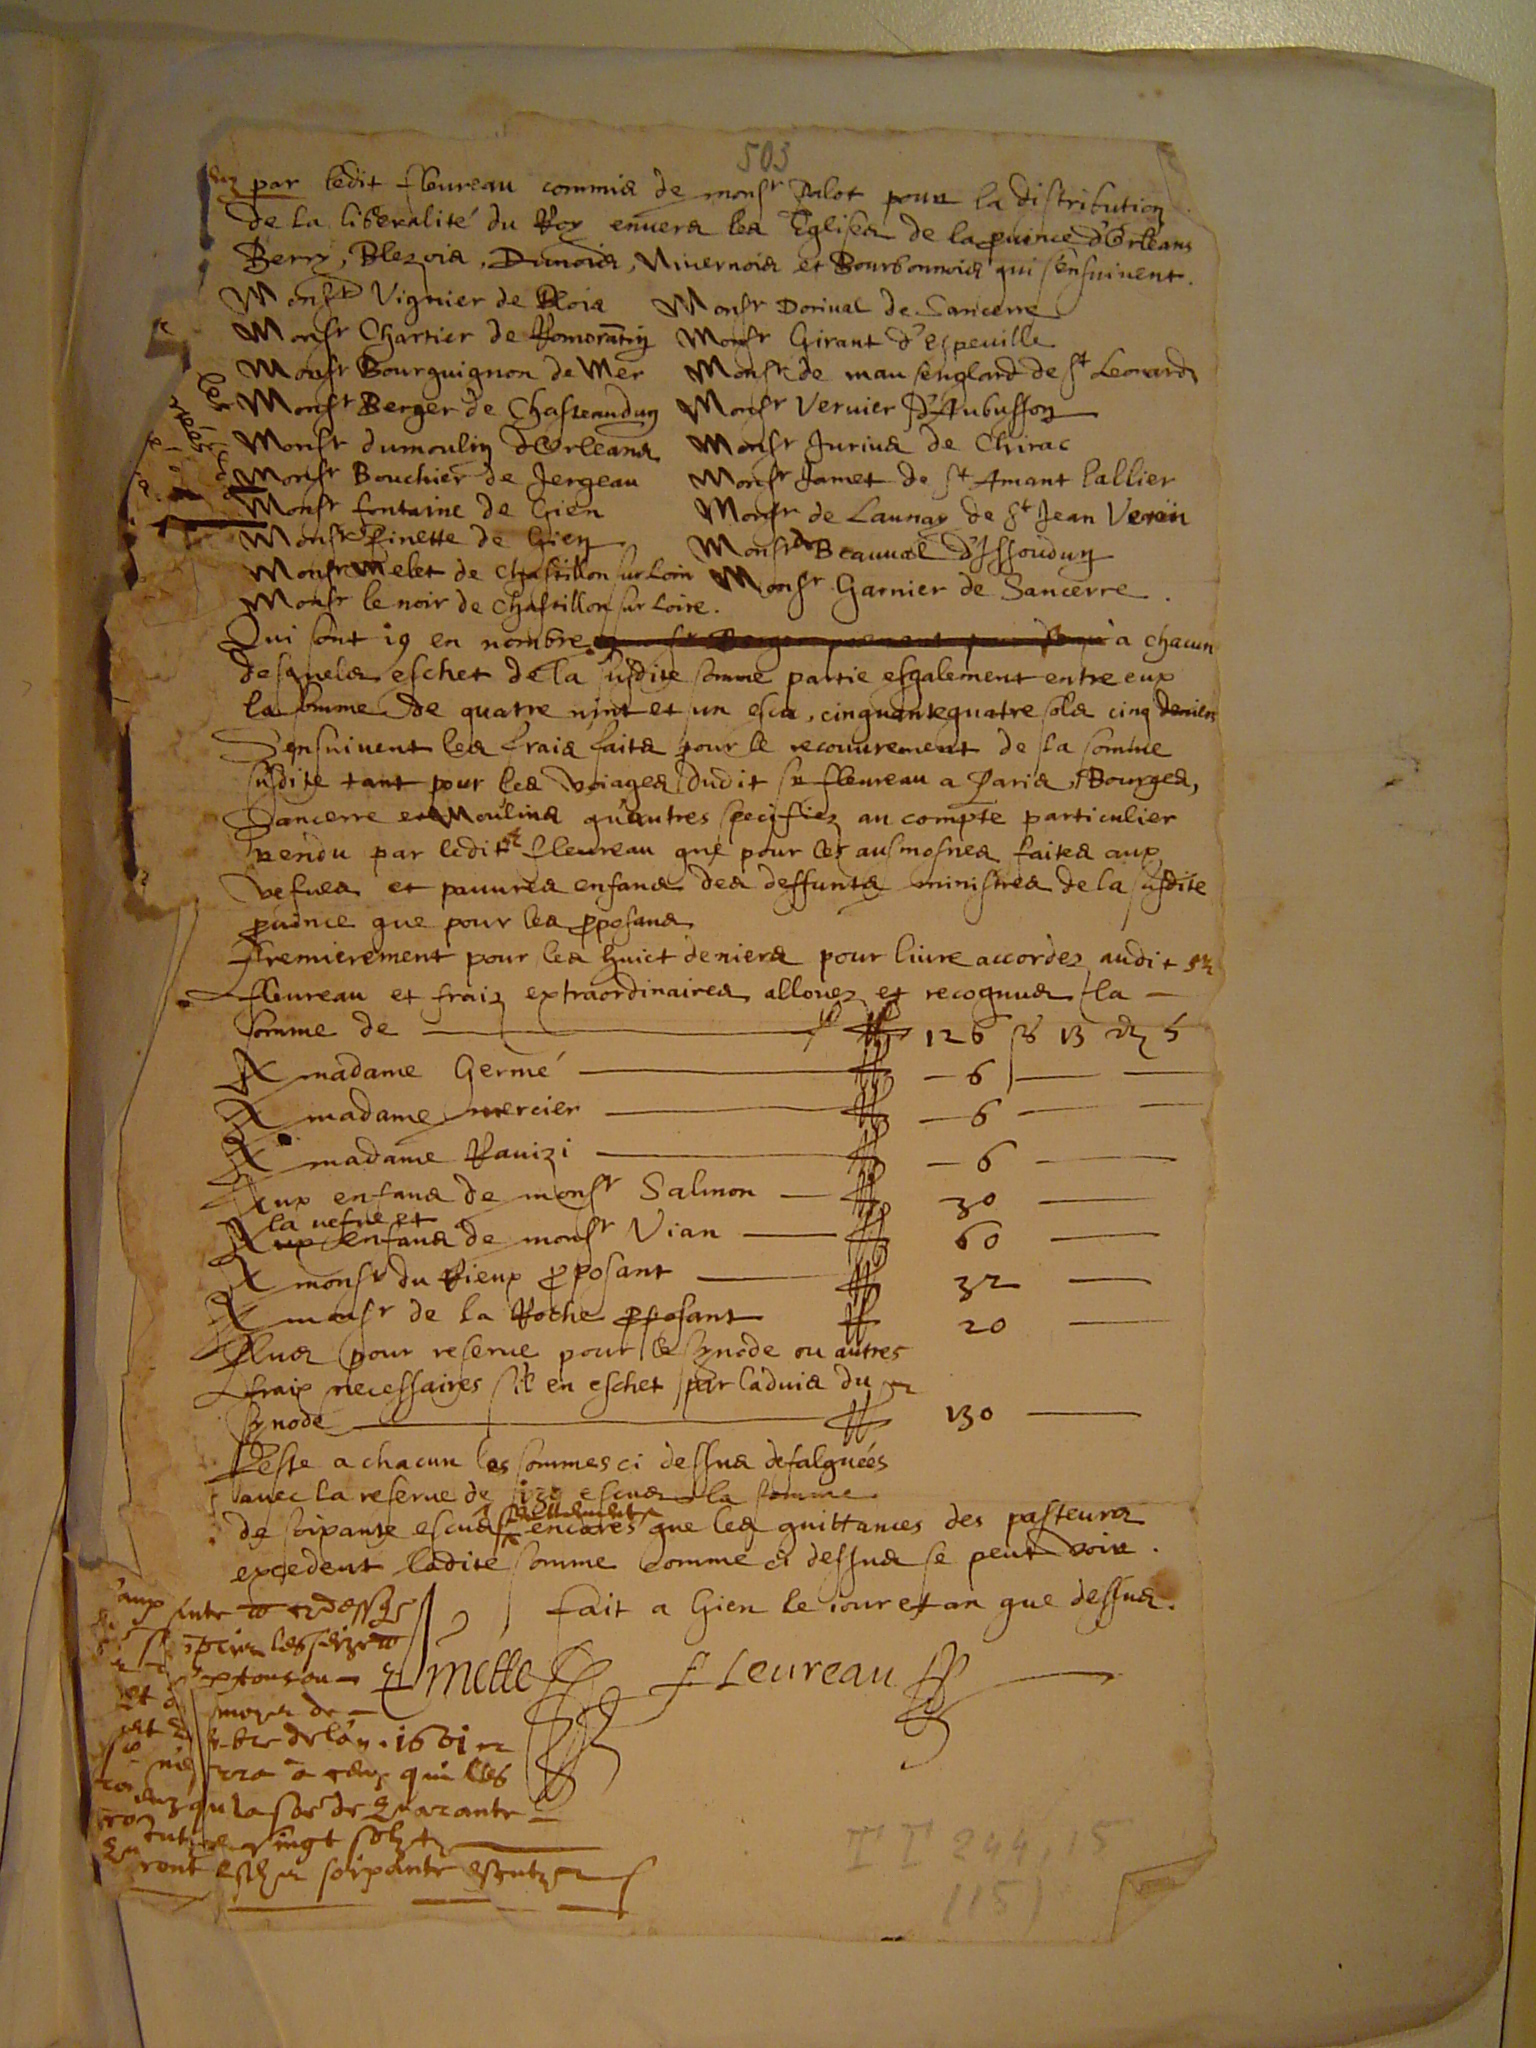 503
par ledit fleureau commis de monsr Palot pour la distribution
De la liberalité du Roy envers les Eglises de la province d'Orleans
Berry, Blezois, Dunois, Nivernois et Bourbonnois qui s'ensuivent.
Monsr Vignier de Blois Monsr Dorival de Sancerre
Monsr Chartier de Romorātin Monsr Girant d'Espeuille
Monsr Bourguignon de Mer Monsr de mausenglard de St Leonard
Monsr Berger de Chasteaudun Monsr Vernier d'Aubusson
Monsr dumoulin d'Orleans Monsr Jurius de Chirac
Monsr Bouchier de Jergeau Monsr Jamet de St Amant l'allier
Monsr fontaine de Gien Monsr de Launay de St Jean
Monsr Pinette de Gien Monsr de Beauval d'Issoudun
Monsr Melet de Chastillon sur Loin Monsr Garnier de Sancerre.
Monsr le noir de Chastillon sur Loire.
Qui sont 19 en nombre a chacun
desquels eschet de la susdite somme partie esgalement entre eux
la somme de quatre vint et un escu, cinquantequatre sols cinq deniers
S'ensuivent les frais faits pour le recouvrement de la somme
susdite tant pour les voiages dudit sr fleureau a Paris, Bourges,
Sancerre et Moulins qu'autres specifiez au compte particulier
rendu par ledit sr fleureau que pour les ausmosnes faites aux
vefves et pauvres enfans des deffunts ministres de la susdite
province que pour les proposans
Premierement pour les huict deniers pour livre accordez audit sr
fleureau et fraiz extraordinaires allouez et recognus la
somme de 126 s 13 d 5
A madame Germé 6
A madame mercier 6
A madame Ravizi 6
Aux enfans de monsr Salmon 30
la vefve et
Aux enfans de monsr Vian 60
A monsr du Rieux proposant 32
A monsr de la Roche proposant 20
Plus pour reserve pour le synode ou autres
fraix necessaires s'il en eschet par l'advis du
synode 130
Reste a chacun les sommes ci dessus defalquées
avec la reserve de escus la somme
de soixante escus encores que les quittances des pasteurs
excedent ladite somme comme ci dessus se peut voir.
fait a Gien le iour et an que dessus.
Pinette fLeureau
de l'an 1601
a ceux qui les
qu la sōe de Quarante
vingt solz
ront soixante escutz
II 244, 15
(15)